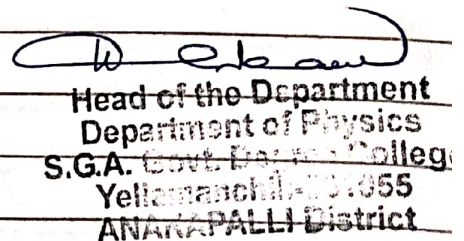 Head of the Department
Department of Physics
S.G.A. Govt. Degree College
Yellamanchili-531055
ANAKAPALLI District